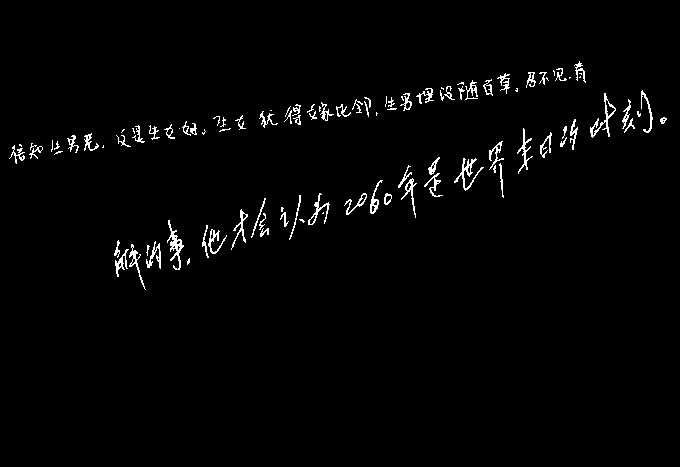 信知生男恶，反是生女好。生女犹得嫁比邻，生男埋没随百草。君不见，青
解的事，他才会认为2060年是世界末日的时刻。